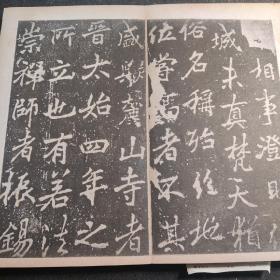 相事澄
城未真梵天猶
俗名稱殆絕地
位嘗高者不其
盛歟麓山寺者
晉太始四年之
所立也有若法
崇禪師者振錫